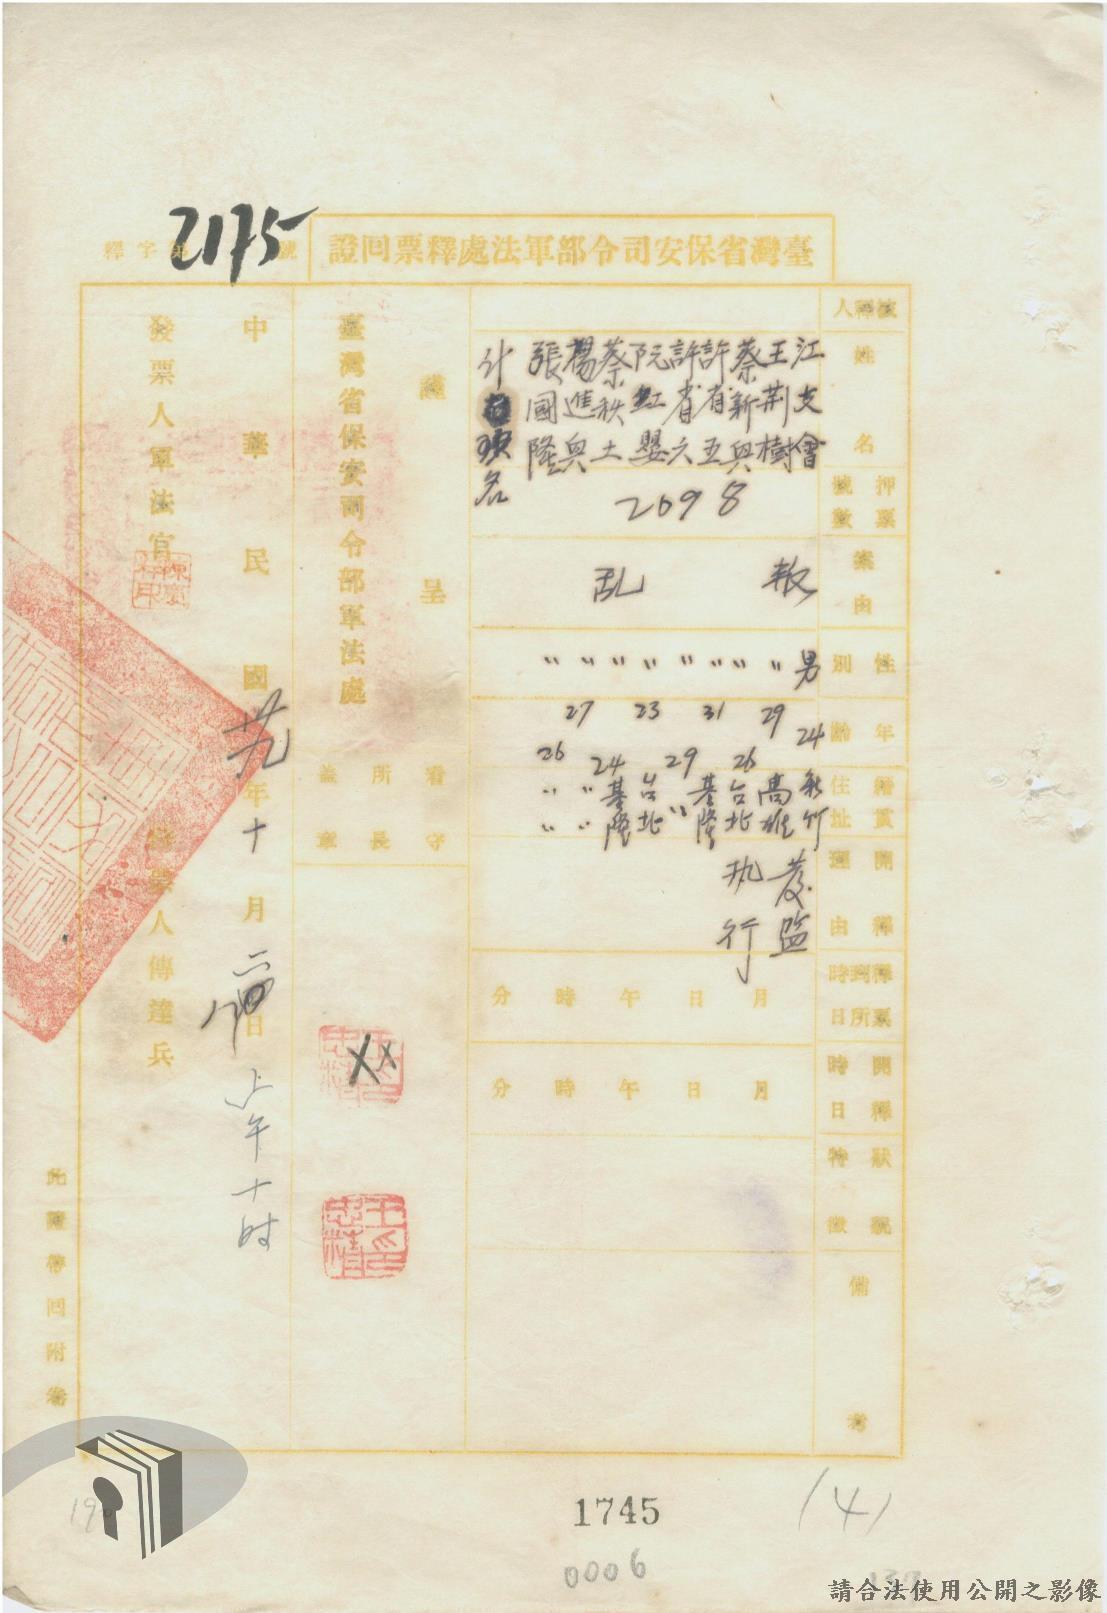 臺灣省保安司令部軍法處釋票回證
釋字第2175號
被釋人
姓名
江支會
王荊樹
蔡新興
許省五
許省六
阮紅嬰
蔡秩土
楊進興
張國隆
計
名
押票號數
2098
案由
叛亂
性別
男 〃 〃 〃 〃 〃 〃 〃 〃
年齡
24 29 26 31 29 23 24 27 26
籍貫住址
新竹
高雄
台北
基隆
〃
台北
基隆
〃 〃
〃 〃
開釋理由
發監
执行
釋票到所時日
月 日 午 時 分
開釋時日
月 日 午 時 分
狀貌特徵
備考
謹呈
臺灣省保安司令部軍法處
看守所所長蓋章
王忠精印
中華民國卅九年十月二 日
上午十时
發票人軍法官
票人傳達兵
此證帶回附卷
1745
0006
(4)
請合法使用公開之影像